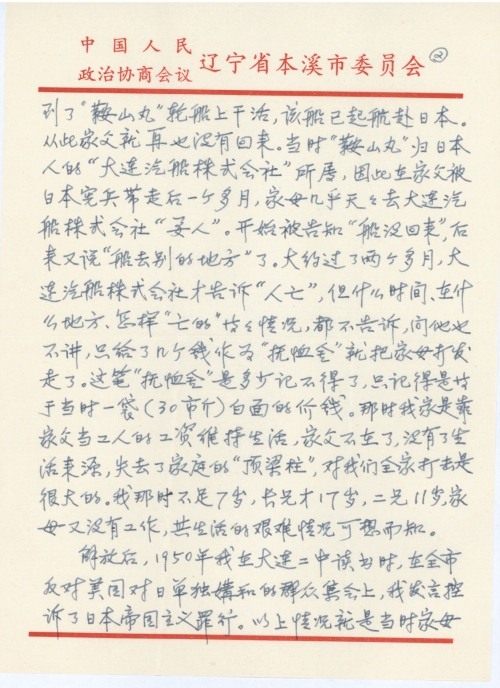 中国人民
政治协商会议 辽宁省本溪市委员会 ②
到了"鞍山丸"轮船上干活,该船已起航赴日本。
从此家父就再也没有回来。当时"鞍山丸"归日本
人的"大连汽船株式会社"所属,因此在家父被
日本宪兵带走后一个多月,家母几乎天々去大连汽
船株式会社"要人"。开始被告知"船没回来",后
来又说"船去别的地方"了。大约过了两个多月,大
连汽船株式会社才告诉"人亡",但什么时间、在什
么地方、怎样"亡的"等々情况,都不告诉,问他也
不讲,只给了几个钱作为"抚恤金"就把家母打发
走了。这笔"抚恤金"是多少记不得了,只记得是等
于当时一袋(30市斤)白面的价钱。那时我家是靠
家父当工人的工资维持生活,家父不在了,没有了生
活来源,失去了家庭的"顶梁柱",对我们全家打击是
很大的。我那时不足7岁,长兄才17岁,二兄11岁,家
母又没有工作,其生活的艰难情况可想而知。
解放后,1950年我在大连二中读书时,在全市
反对美国对日单独媾和的群众集会上,我发言控
诉了日本帝国主义罪行。以上情况就是当时家母